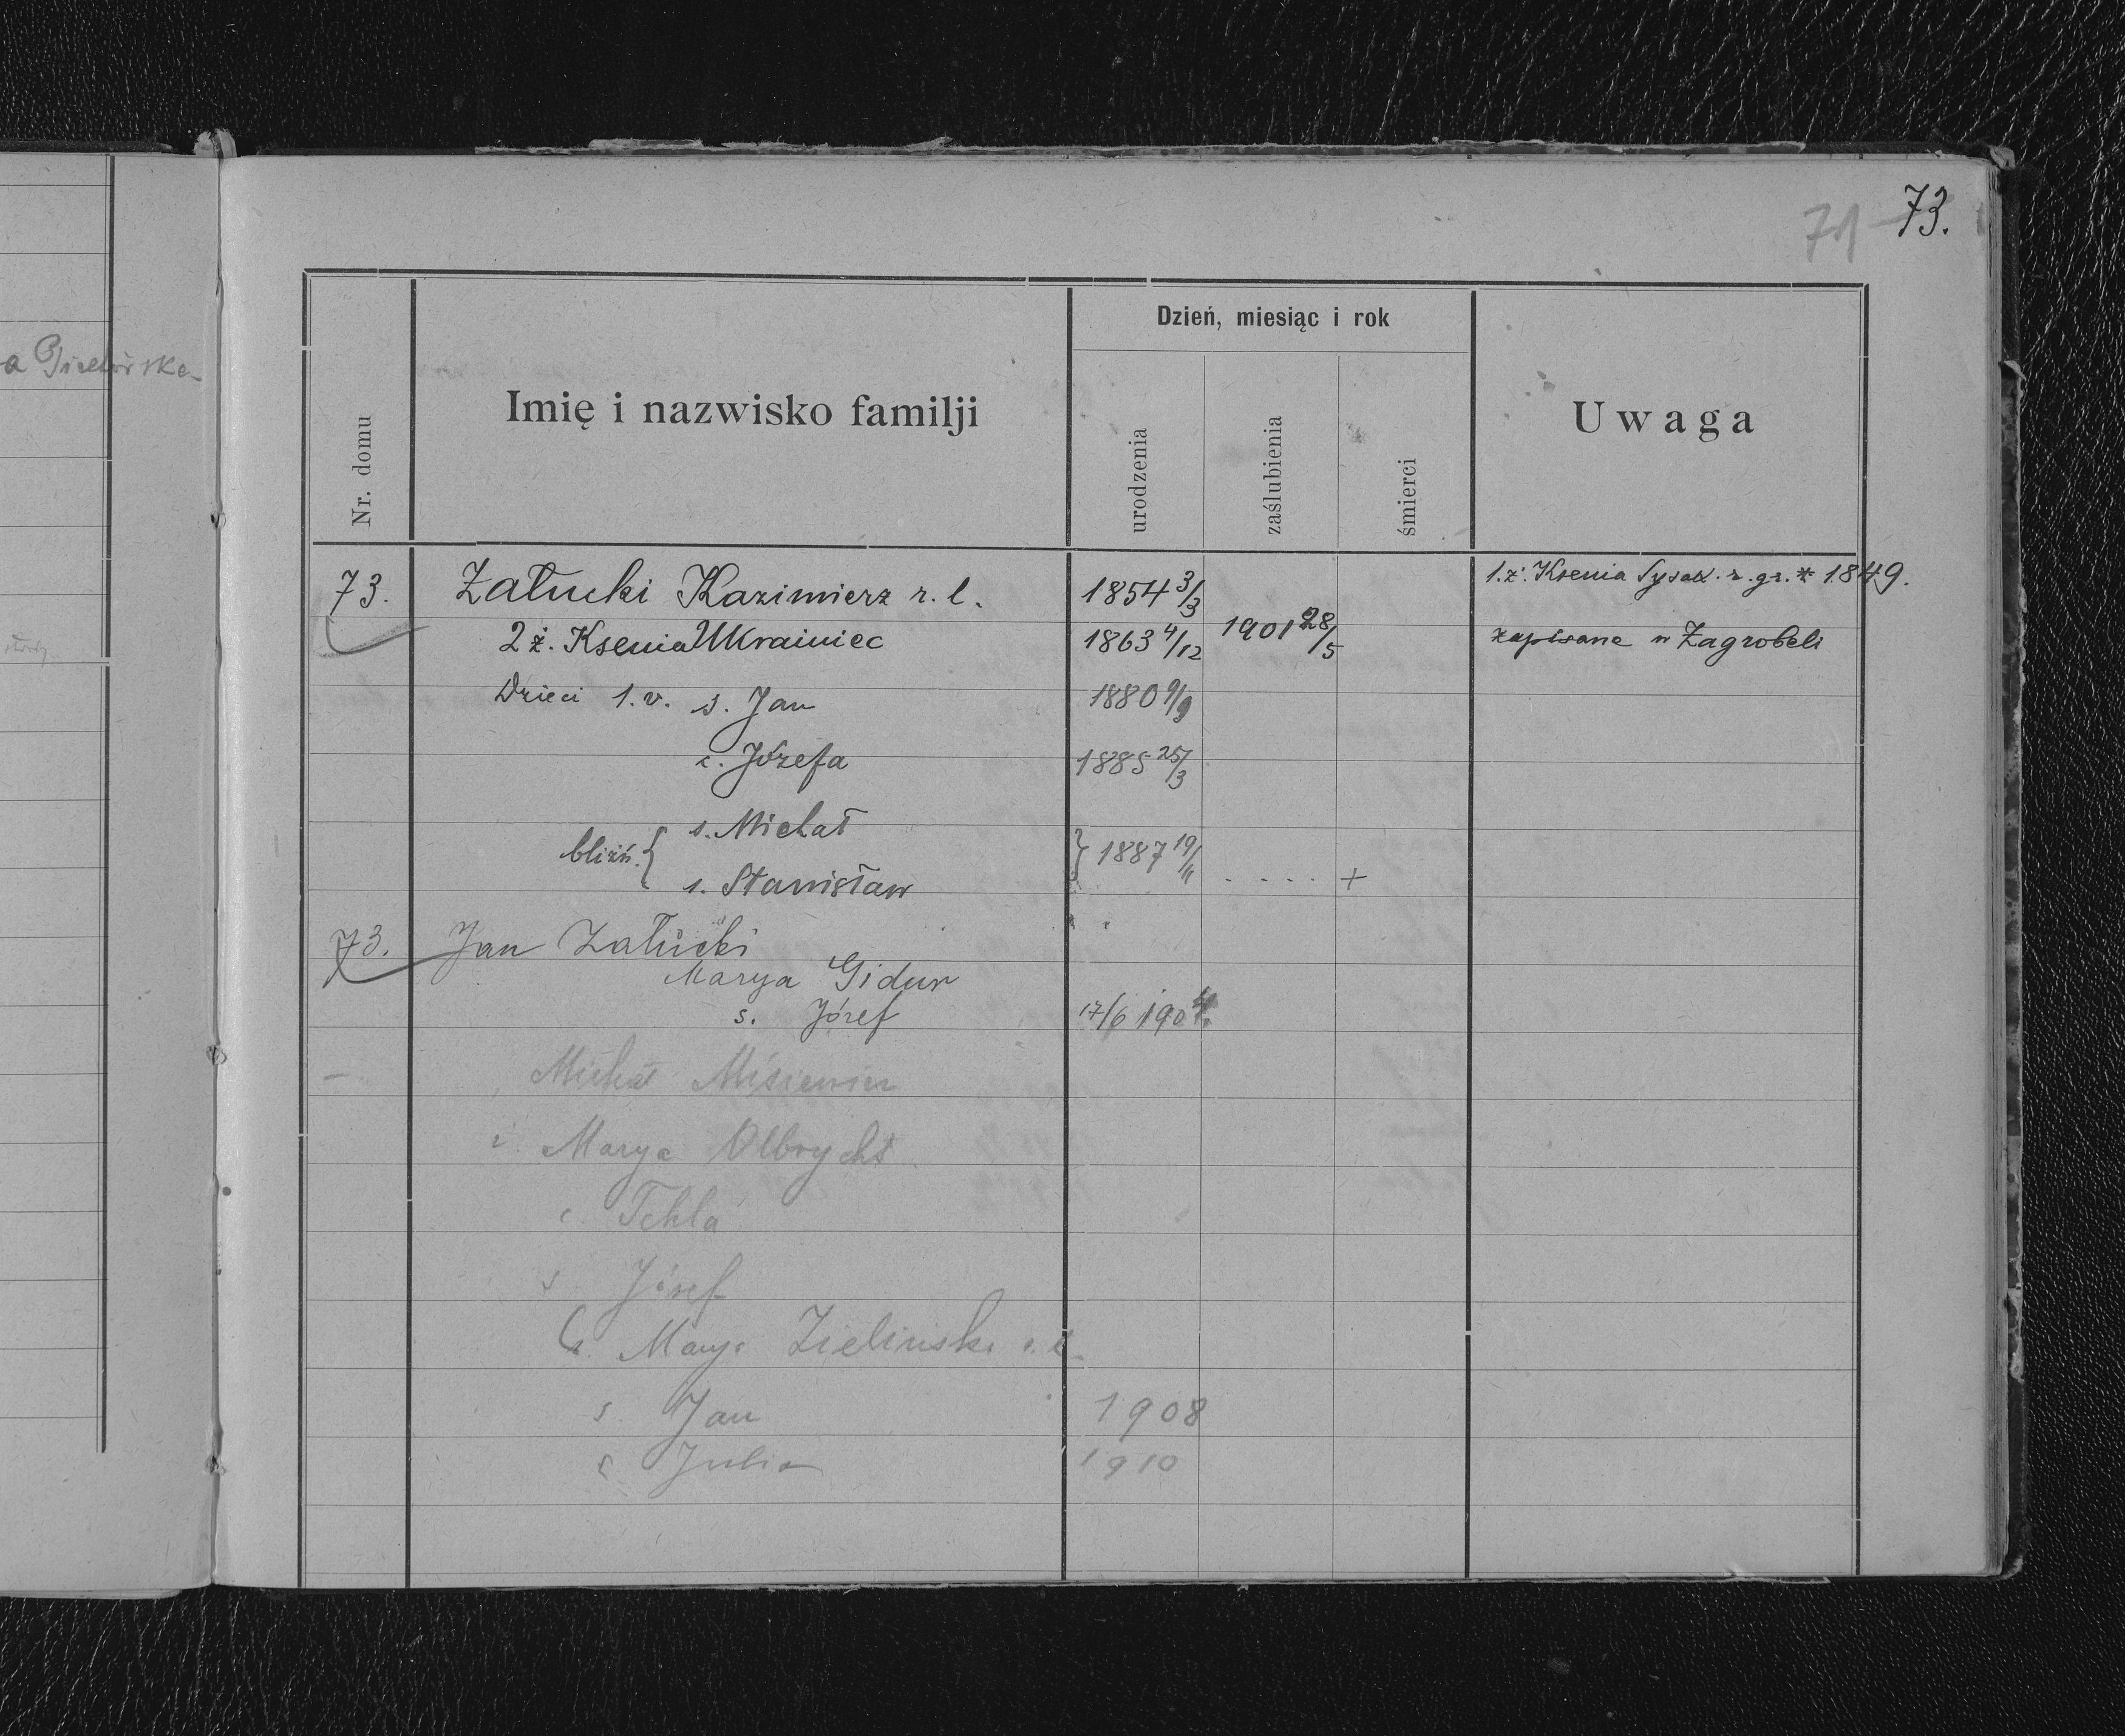 a
73.
71
Dzień, miesiąc i rok
Nr. domu
Imię i nazwisko familji
urodzenia
zaślubienia
śmierci
Uwaga
73. Załucki Kazimierz r. l. 1854 3/3 1. ż. Ksenia Sysak. r. gr. * 1849.
2 ż. Ksenia Ukrainiec 1863 4/12 1901 28/5 zapisane w Zagrobeli
Dzieci 1. v. s. Jan 1880 9/9
c. Józefa 1885 25/3
s. Michał
bliźń. { } 1887 19/11
s. Stanisław . . . . +
73. Jan Załucki
Marya Gidur
s. Józef 17/6 1904.
Michał Misiewicz
ż. Marya Olbrycht
c. Tekla
s. Józef
Marya Zielińska r. l.
s. Jan 1908
c. Julia 1910